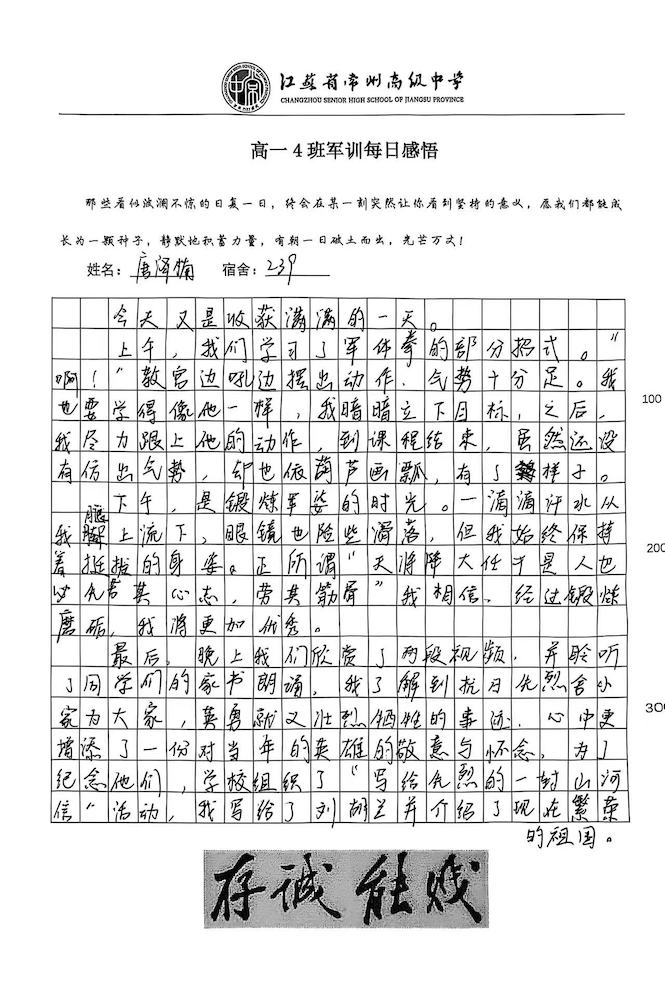 江苏省常州高级中学
CHANGZHOU SENIOR HIGH SCHOOL OF JIANGSU PROVINCE
高一4班军训每日感悟
那些看似波澜不惊的日复一日，终会在某一刻突然让你看到坚持的意义，愿我们都能成
长为一颗种子，静默地积蓄力量，有朝一日破土而出，光芒万丈！
姓名：唐泽楠 宿舍：239
今天又是收获满满的一天。
上午，我们学习了军体拳的部分招式。“
啊！”教官边吼边摆出动作，气势十分足。我
也要学得像他一样，我暗暗立下目标，之后，
我尽力跟上他的动作，到课程结束，虽然还没
有仿出气势，却也依葫芦画瓢，有了样子。
下午，是锻炼军姿的时光。一滴滴汗水从
我腿上流下，眼镜也险些滑落，但我始终保持
着挺拔的身姿。正所谓“天将降大任于是人也
必先苦其心志，劳其筋骨”我相信，经过锻炼
磨砺，我将更加优秀。
最后，晚上我们欣赏了两段视频，并聆听
了同学们的家书朗诵，我了解到抗日先烈舍小
家为大家，英勇就义壮烈牺牲的事迹，心中更
增添了一份对当年的英雄的敬意与怀念，为了
纪念他们，学校组织了“写给先烈的一封山河
信”活动，我写给了刘胡兰并介绍了现在繁荣
的祖国。
100
200
300
存诚能贱